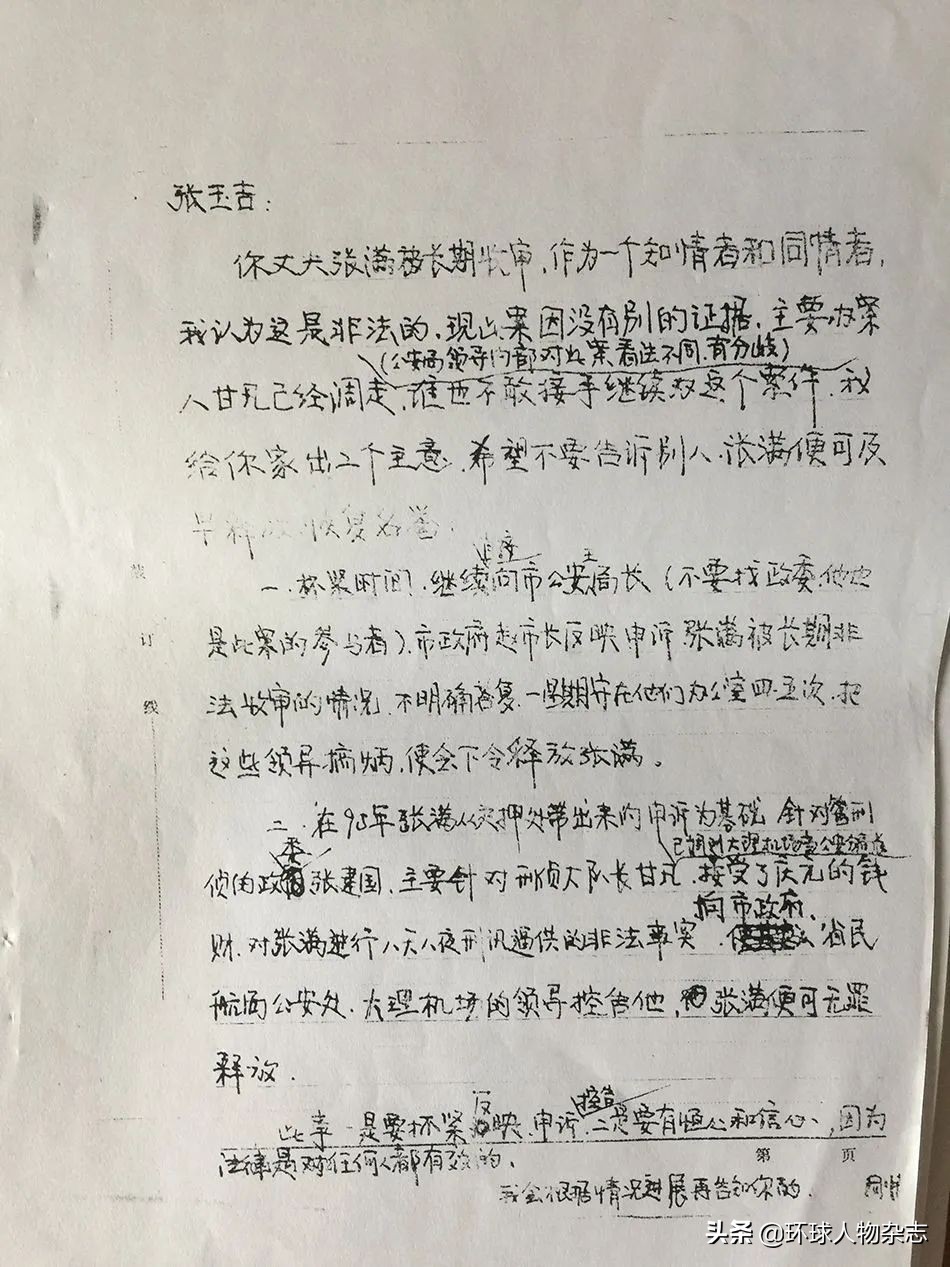 张玉吉：
你丈夫张满被长期收审，作为一个知情者和同情者，
我认为这是非法的，现此案因没有别的证据，主要办案
（公安局领导内部对此案看法不同，有分岐）
人甘孔已经调走，谁也不敢接手继续办这个案件，我
给你家出二个主意，希望不要告诉别人，张满便可及
早释放恢复名誉。
一、抓紧时间，继续向市公安局长（不要找政委，他也
主
是此案的参与者）、市政府赵市长反映申诉张满被长期非
法收审的情况，不明确答复，一星期守在他们办公室四、五次，把
这些领导搞炳，便会下令释放张满。
二、在95年张满从关押处带出来的申诉为基础，针对管刑
已调到大理机场当公安
侦的政委张建国，主要针对刑侦大队长甘孔，接受了庆元的钱
向市政府、
财，对张满进行八天八夜刑讯逼供的非法事实，省民
航局公安处、大理机场的领导控告他，张满便可无罪
释放。
此事一是要抓紧反映、申诉，二是要有恒心和信心，因为
控告
法律是对任何人都有效的。
我会根据情况进展再告知你的。
装
订
线
第 页
头条 @环球人物杂志